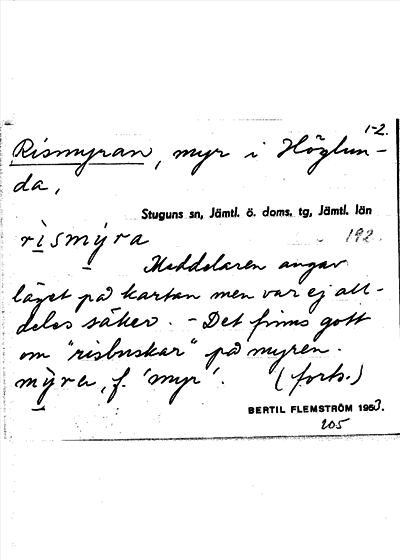 1-2.
Rismyran, myr i Höglun-
da,
Stuguns sn, Jämtl. ö. doms. tg, Jämtl. län
rìsmy̆ra 192
Meddelaren angav
läget på kartan men var ej all-
deles säker. - Det finns gott
om "risbuskar" på myren.
mỳra, f. 'myr'. (forts.)
BERTIL FLEMSTRÖM 1953.
205